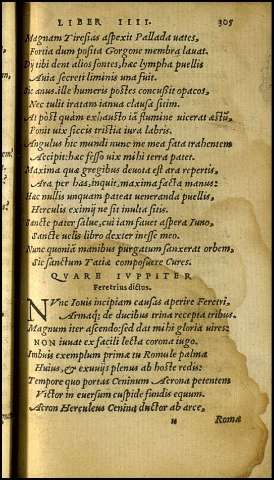 LIBER IIII. 305
Magnam Tiresias aspexit Pallada uates,
Fortia dum posita Gorgone membra lauat.
Dij tibi dent alios fontes, hæc lympha puellis
Auia secreti liminis una fuit.
Sic anus. ille humeris postes concußit opacos,
Nec tulit iratam ianua clausa sitim.
At póst quàm exhausto iā flumine uicerat æstū,
Ponit uix siccis tristia iura labris.
Angulus hic mundi nunc me mea fata trahentem
Accipit: hæc fesso uix mihi terra patet.
Maxima quæ gregibus deuota est ara repertis,
Ara per has, inquit, maxima facta manus:
Hæc nullis unquam pateat ueneranda puellis,
Herculis eximij ne sit inulta sitis.
Sancte pater salue, cui iam fauet aspera Iuno,
Sancte uelis libro dexter inesse meo.
Nunc quoniā manibus purgatum sanxerat orbem,
Sic sanctum Tatiæ composuere Cures.
QVARE IVPPITER
Feretrius dictus.
NVnc Iouis incipiam causas aperire Feretri,
Armaq́; de ducibus trina recepta tribus.
Magnum iter ascendo: sed dat mihi gloria uires:
NON iuuat ex facili lecta corona iugo.
Imbuis exemplum primæ tu Romule palmæ
Huius, & exuuijs plenus ab hoste redis:
Tempore quo portas Ceninum Acrona petentem
Victor in euersum cuspide fundis equum.
Acron Herculeus Cenina ductor ab arce,
u Romæ